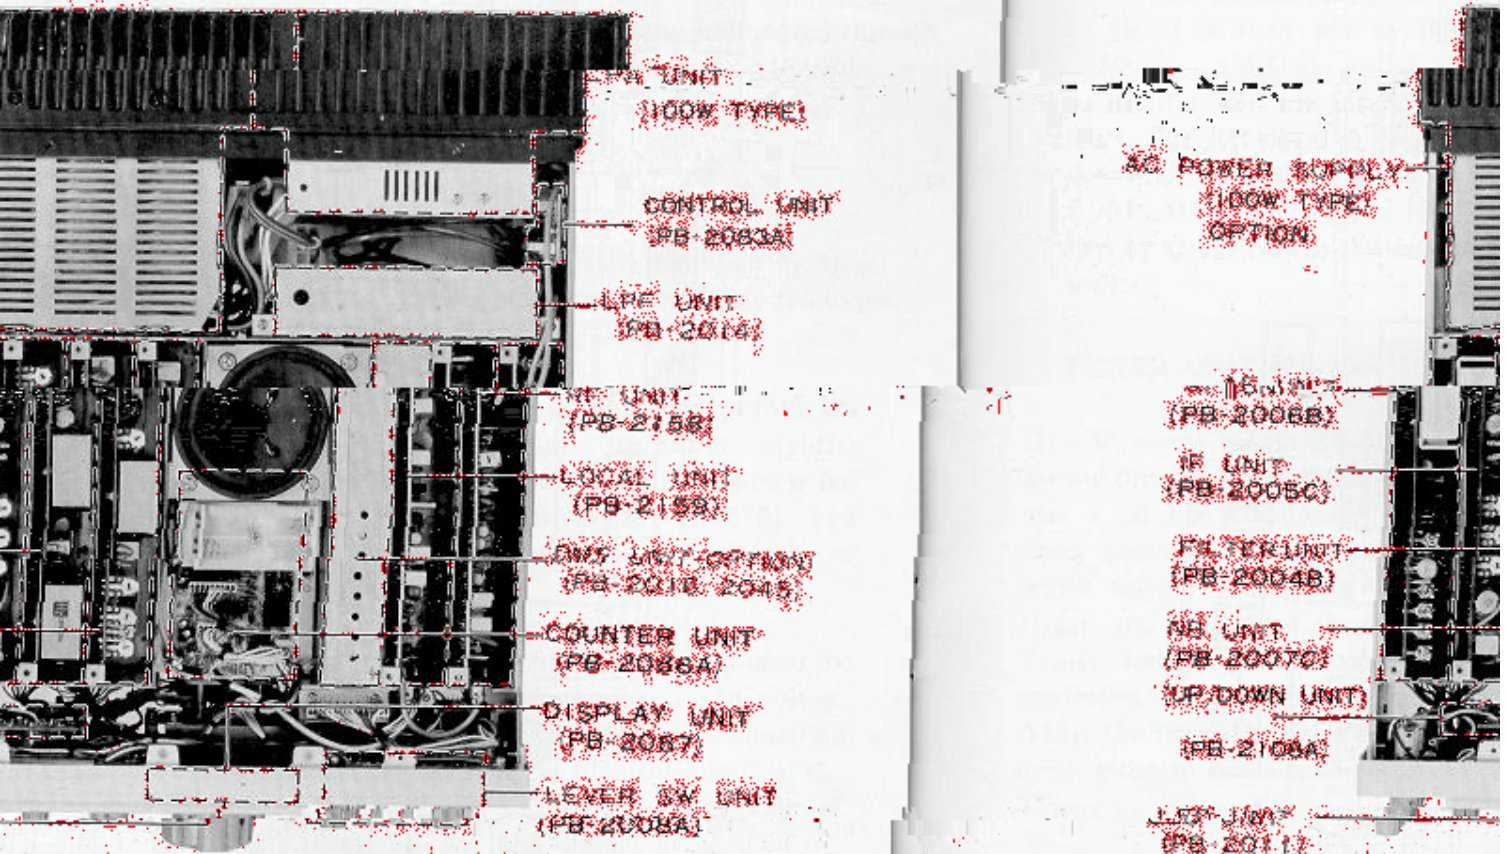 PA UNIT
(100W TYPE)
CONTROL UNIT
(PB-2083A)
LPF UNIT
(PB-2014)
RF UNIT
(PB-2158)
LOCAL UNIT
(PB-2159)
DMS UNIT-OPTION)
(PB-2016, 2045)
COUNTER UNIT
(PB-2086A)
DISPLAY UNIT
(PB-2087)
LEVER SW UNIT
(PB-2008A)
AC POWER SUPPLY
(100W TYPE)
OPTION
(PB-2006B)
IF UNIT
(PB-2005C)
FILTER UNIT
(PB-2004B)
NB UNIT
(PB-2007C)
(UP/DOWN UNIT)
(PB-2108A)